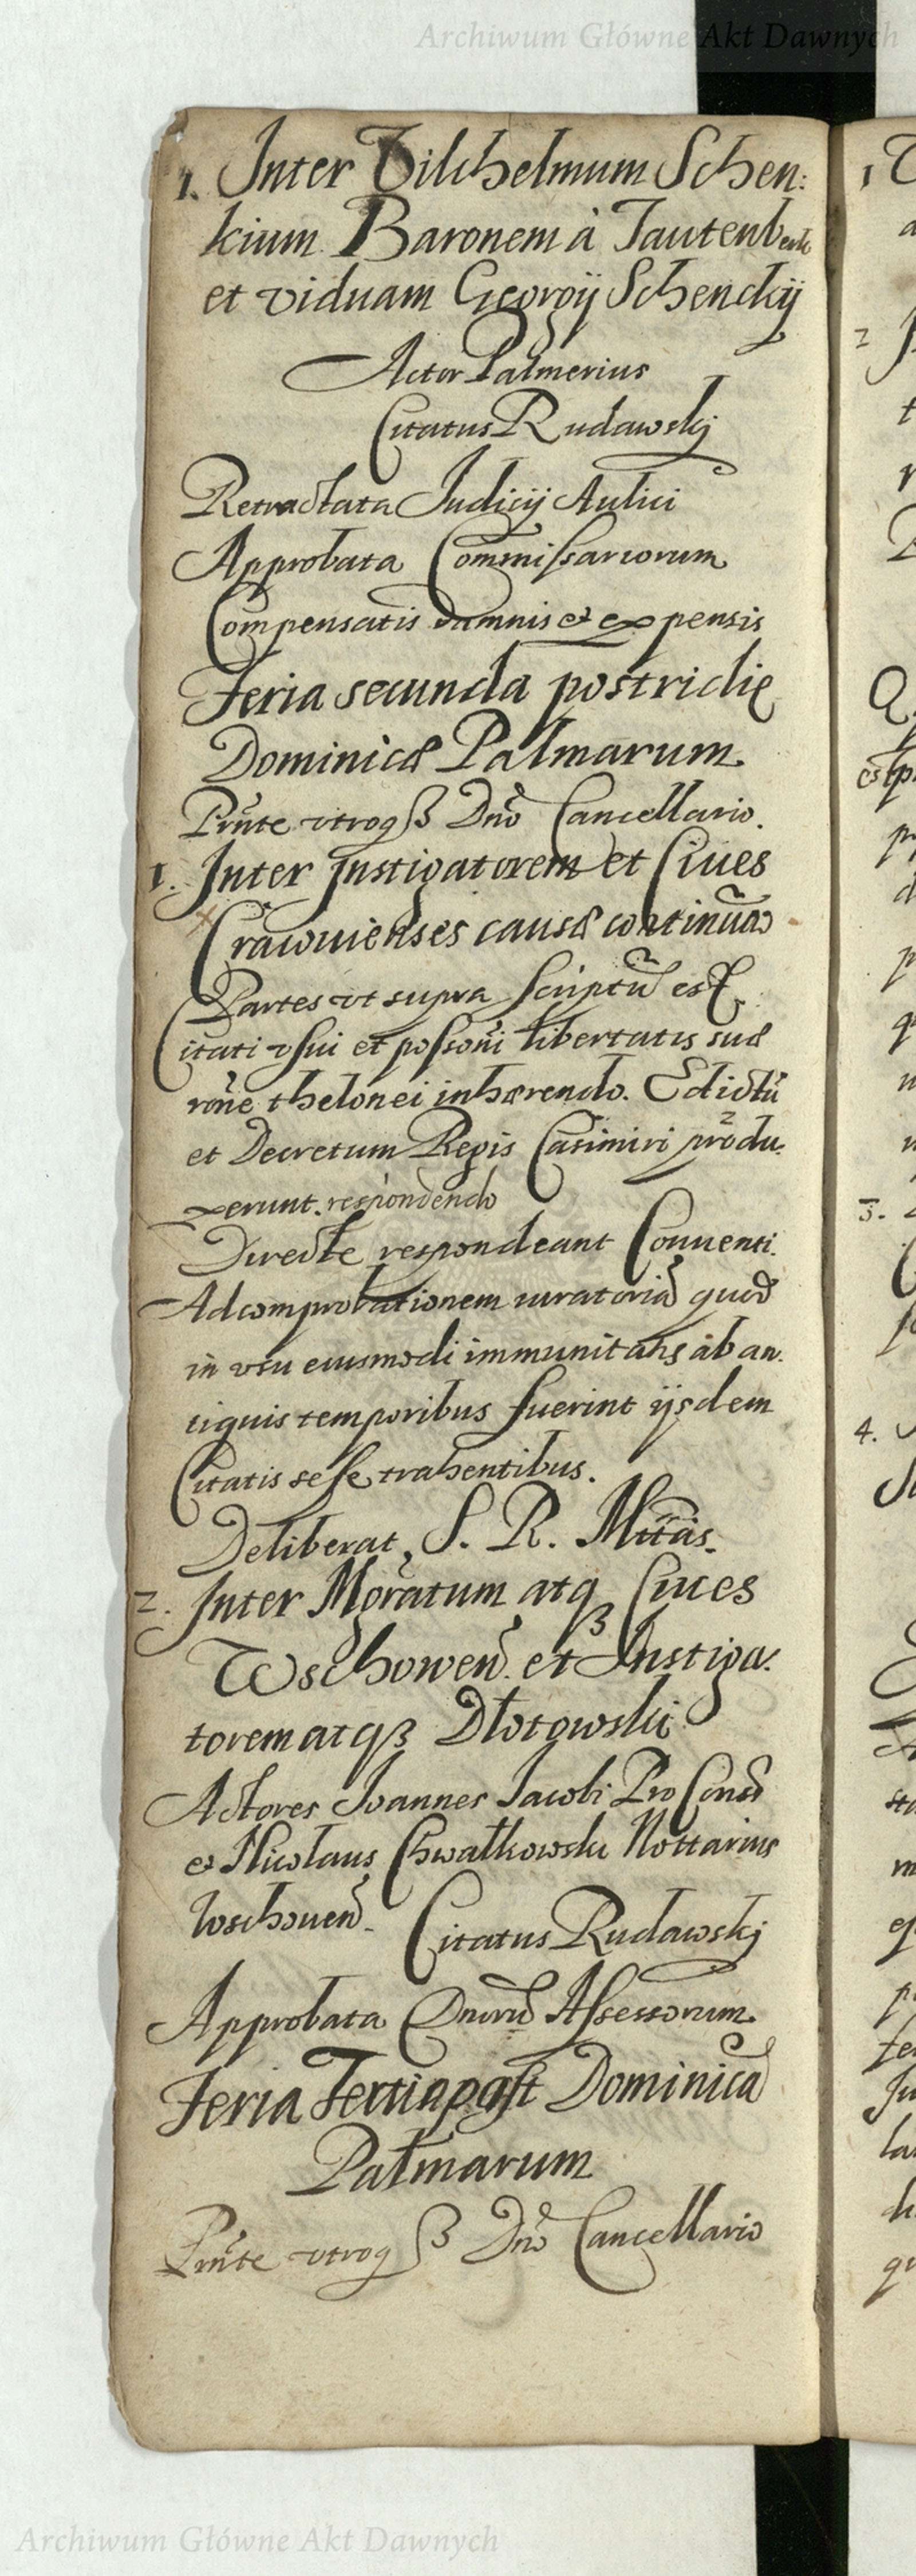 Archiwum Główne Akt Dawnych
1. Inter Vilchelmum Schen:
kium Baronem à Tautenb
et viduam Georgÿ Schenckÿ
Actor Palmerius
Citatus Rudawskj
Retractata Judicÿ Aulici
Approbata Commissariorum
Compensatis damnis et expensis
Feria secunda postridie
Dominicæ Palmarum.
Prñte vtroqꝫ Dnõ Cancellario.
1. Inter Instigatorem et Ciues
Cracouienses causæ continuã
Partes vt supra scriptũ est
Citati vsui et possõni libertatis suæ
rõne thelonei inhærendo. Edictũ
et Decretum Regis Casimiri produ:
xerunt. respondendo
Directe respondeant Conuenti.
Ad comprobationem iuratoriã quod
in vsu eiusmodi immunitatis ab an.
tiquis temporibus fuerint ijsdem
Citatis sese trahentibus.
Deliberat S. R. Mttãs.
2. Inter Mgratum atqꝫ Ciues
Wschoweñ. et Instiga:
torem atqꝫ Dłotowski
Actores Ioannes Jacobi Pro Cons
et Nicolaus Chwałkowski Nottarius
Wschoueñ. Citatus Rudawskj
Approbata Dnorũ Assessorum.
Feria Tertia post Dominicã
Palmarum
Prñte vtroqꝫ Dnõ Cancellario
1
2
3.
4.
Archiwum Główne Akt Dawnych